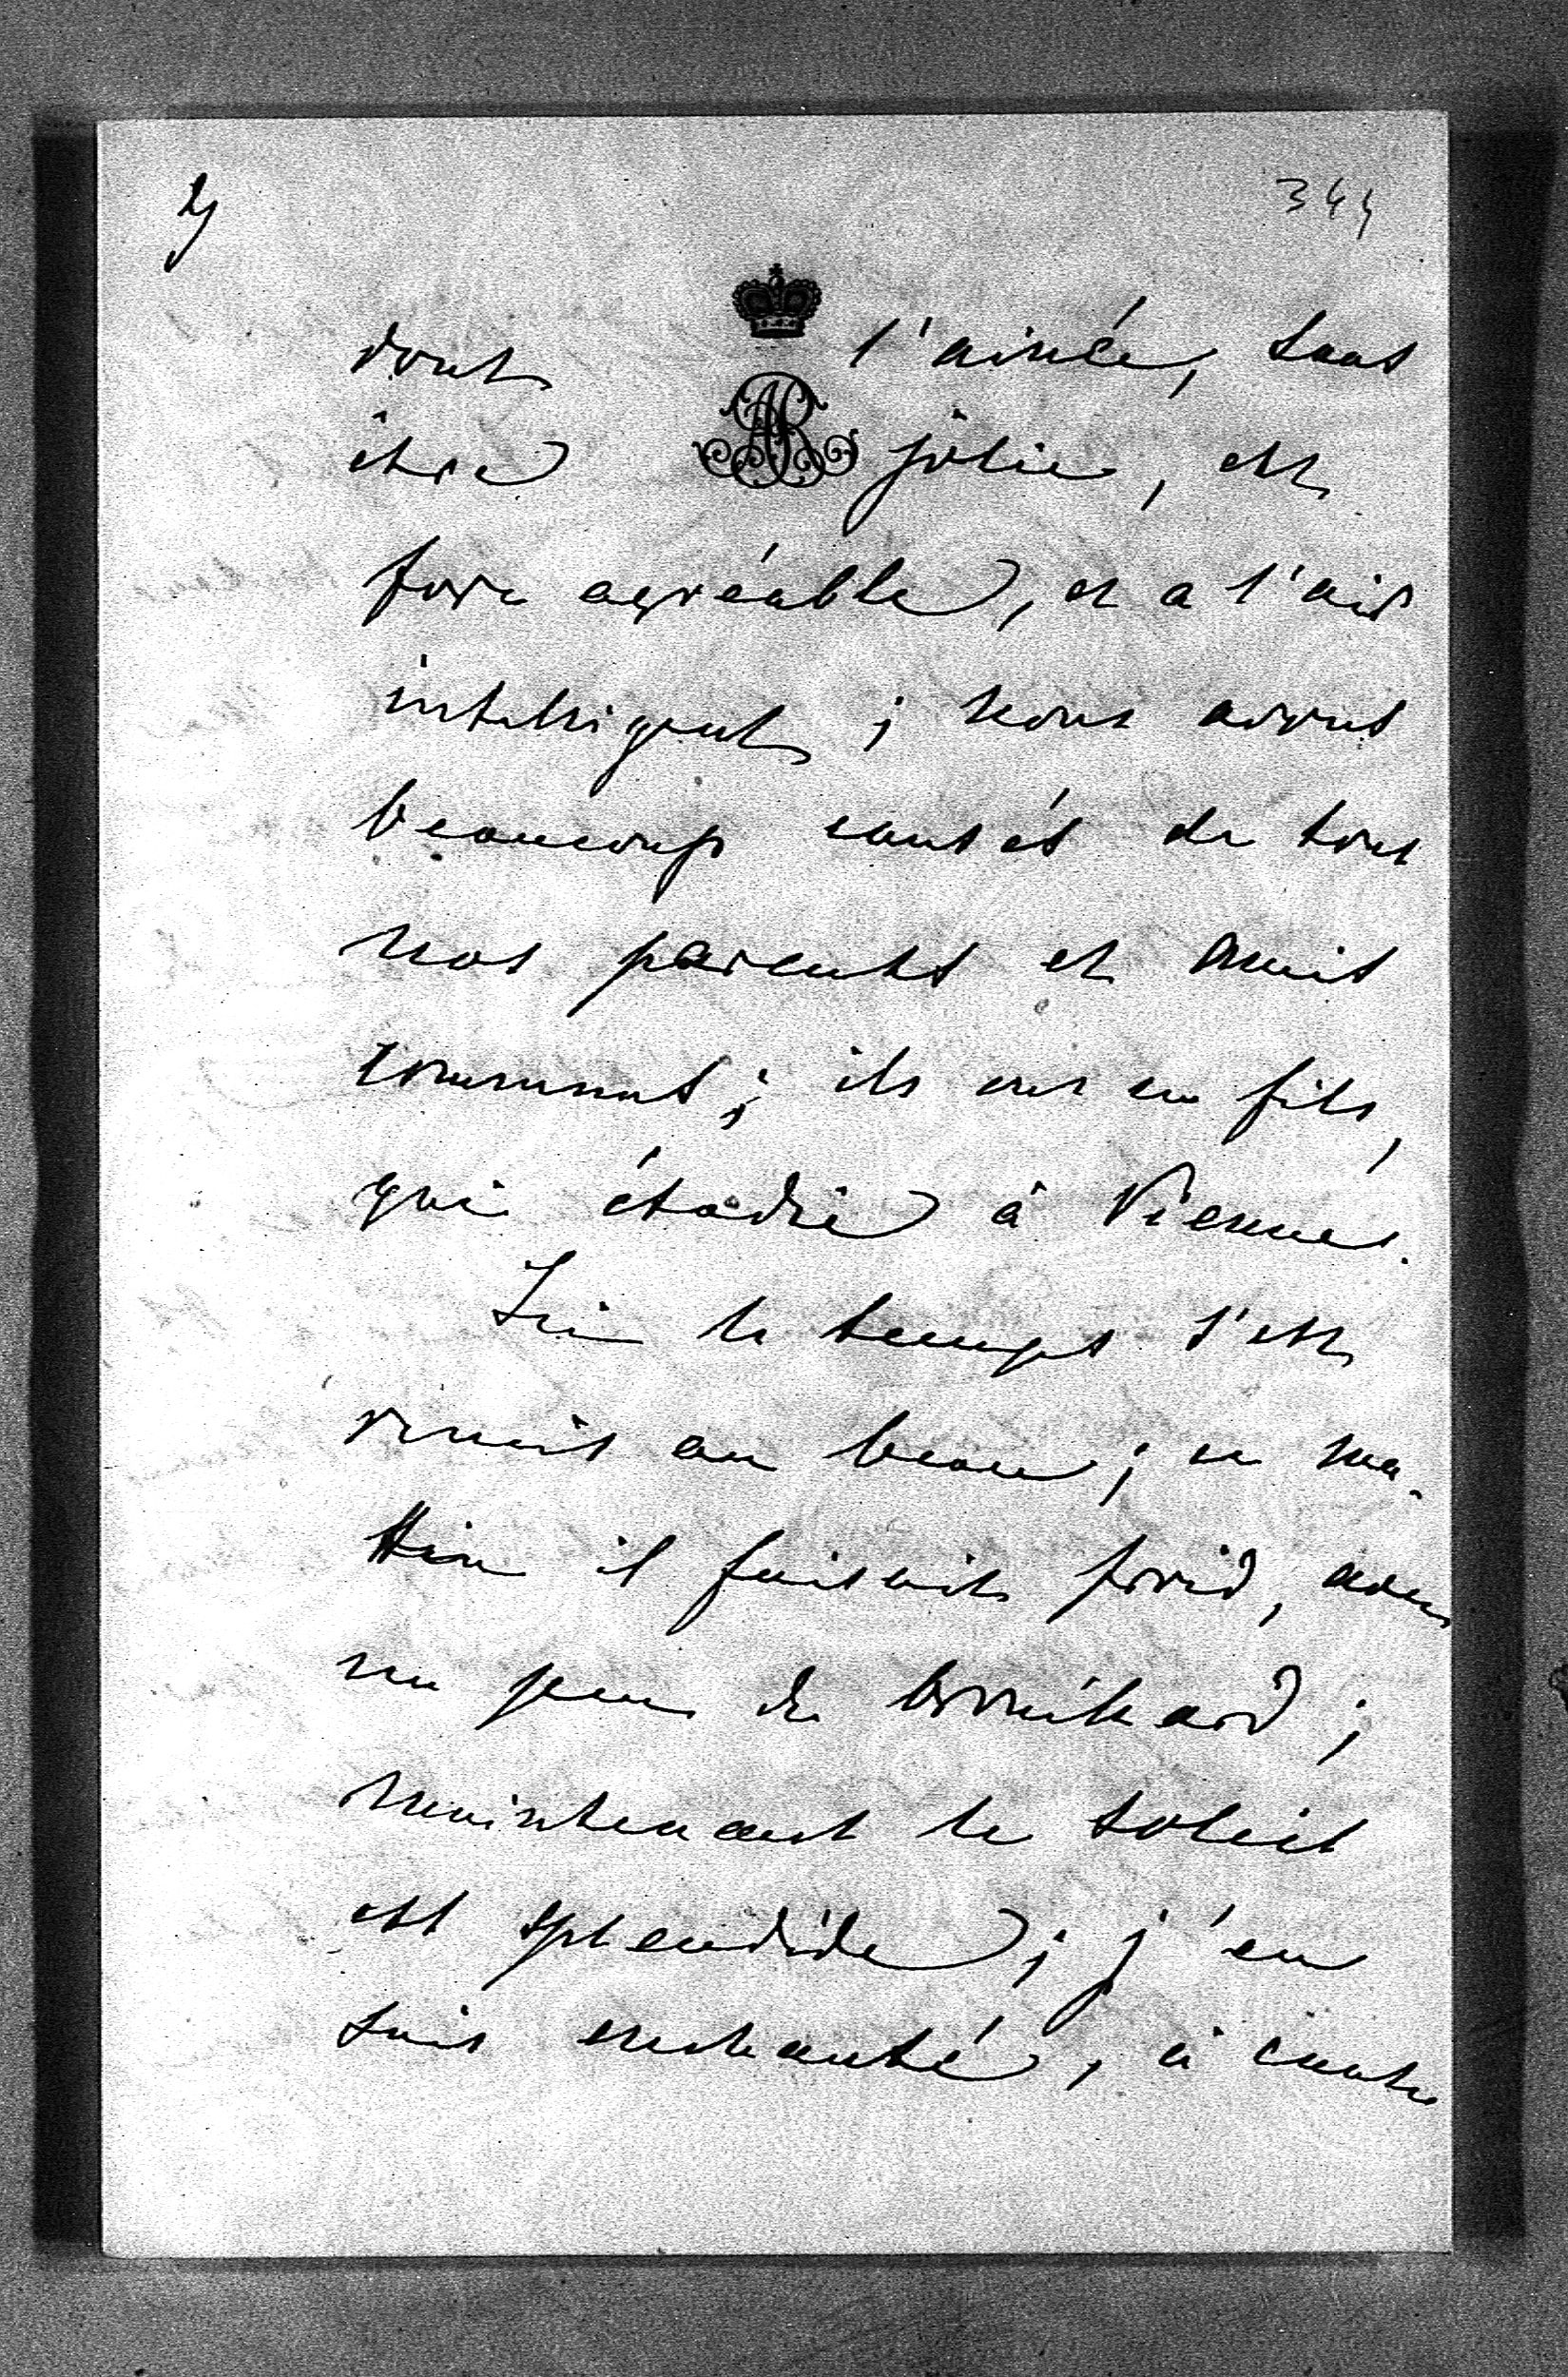 2)
344
dont l'ainée, sans
être jolie, est
fort agréable, et a l'air
intelligent; nous avons
beaucoup causés de tous
nos parents et amis
communs; ils ont un fils,
qui étudie à Vienne.
Ici le temps s'est
remis au beau; ce ma-
ttin il faisait froid, avec
un peu de brouillard;
maintenant le soleil
est splendide; j'en
suis enchanté, à cause